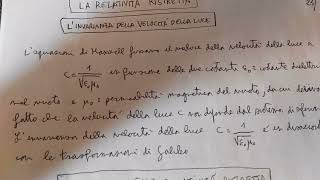 LA RELATIVITÀ RISTRETTA
L'INVARIANZA DELLA VELOCITÀ DELLA LUCE
L'equazioni di Maxwell fissano il valore della velocità della luce a
C = 1/√ε₀μ₀ in funzione delle due costanti ε₀ = costante dielettrica
nel vuoto e μ₀ = permeabilità magnetica del vuoto, da cui deriva
fatto che la velocità della luce C non dipende dal sistema di riferi
L'invarianza della velocità della luce C = 1/√ε₀μ₀ è in
con le trasformazioni di Galileo